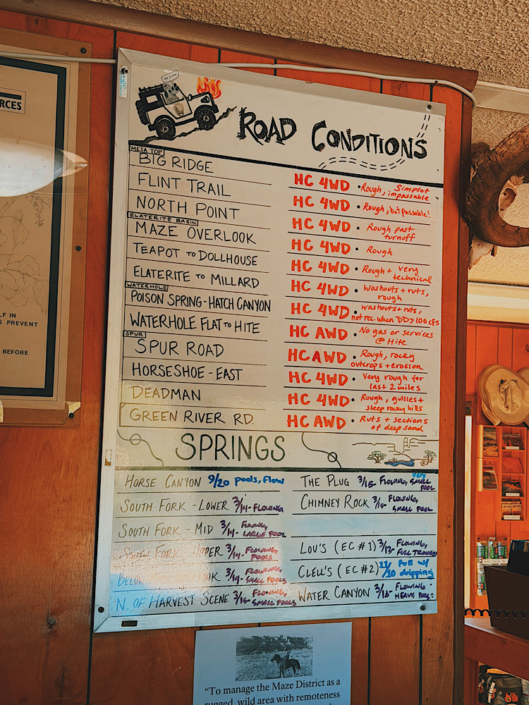 RCES
LF IN
S PREVENT
BEFORE
ROAD CONDITIONS
MESA TOP
BIG RIDGE HC 4WD • Rough, Simplot impassable
FLINT TRAIL HC 4WD • Rough, but passable!
NORTH POINT HC 4WD • Rough past turnoff
ELATERITE BASIN
MAZE OVERLOOK HC 4WD • Rough
TEAPOT TO DOLLHOUSE HC 4WD • Rough + very technical
ELATERITE TO MILLARD HC 4WD • Washouts + ruts, rough
WATERHOLE
POISON SPRING-HATCH CANYON HC 4WD • washouts + ruts, not rec. when DD > 100 cfs
WATERHOLE FLAT TO HITE HC AWD • No gas or services @ Hite
SPUR
SPUR ROAD HC AWD • Rough, rocky outcrops + erosion
HORSESHOE - EAST HC 4WD • Very rough for last 2 miles
DEADMAN HC 4WD • Rough, gullies + steep rocky hills
GREEN RIVER RD. HC AWD • Ruts + sections of deep sand
SPRINGS
HORSE CANYON 9/20 pools, flow
SOUTH FORK - LOWER 3/14 - FLOWING
SOUTH FORK - MID 3/14 - FLOWING, LARGE POOL
SOUTH FORK - UPPER 3/14 - FLOWING, POOLS
3/14 - FLOWING, SMALL POOLS
N. OF HARVEST SCENE 3/14 - FLOWING, SMALL POOLS
THE PLUG 3/15 FLOWING, VERY SMALL POOL
CHIMNEY ROCK 3/15 - FLOWING, SMALL POOL
LOU'S (EC #1) FLOWING, FULL TROUGH
CLELL'S (EC #2) Full w/ dripping
WATER CANYON 3/15 - FLOWING
"To manage the Maze District as a
rugged, wild area with remoteness